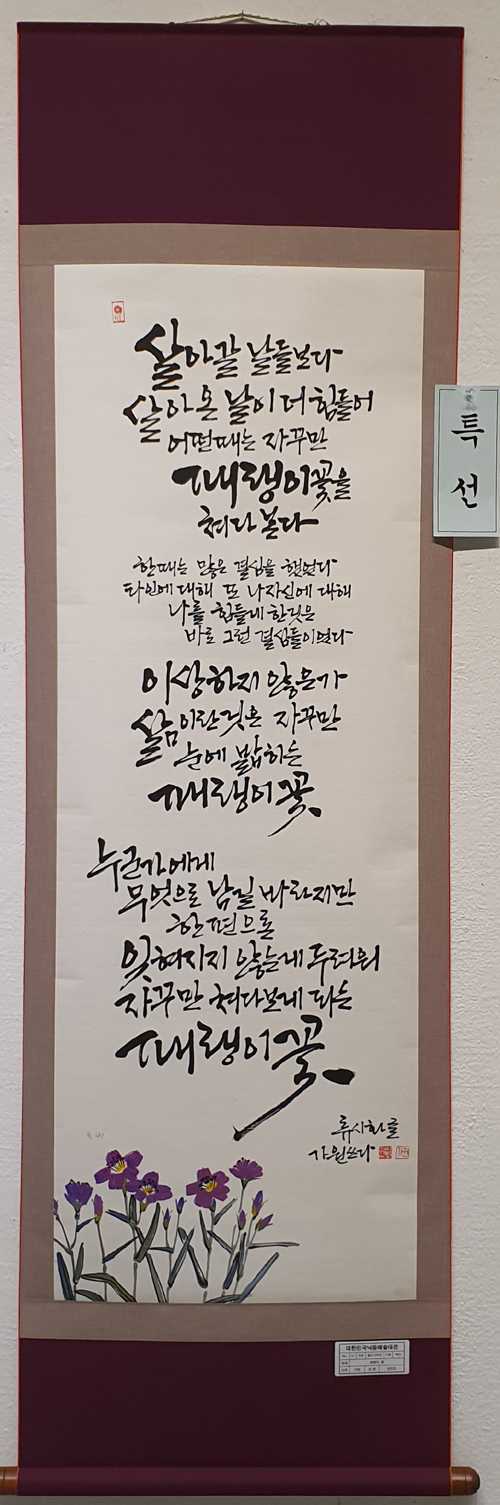 살아갈 날들보다
살아온 날이 더 힘들어
어떤때는 자꾸만
패랭이꽃을
쳐다본다
한때는 많은 결심을 했었다
타인에 대해 또 나자신에 대해
나를 힘들게 한것은
바로 그런 결심들이었다
이상하지 않은가
삶이란것은 자꾸만
눈에 밟히는
패랭이꽃
누군가에게
무엇으로 남길 바라지만
한편으론
잊혀지지 않는게 두려워
자꾸만 쳐다보게 되는
패랭이꽃
류시화 글
가원쓰다
특선
대한민국낙동예술대전